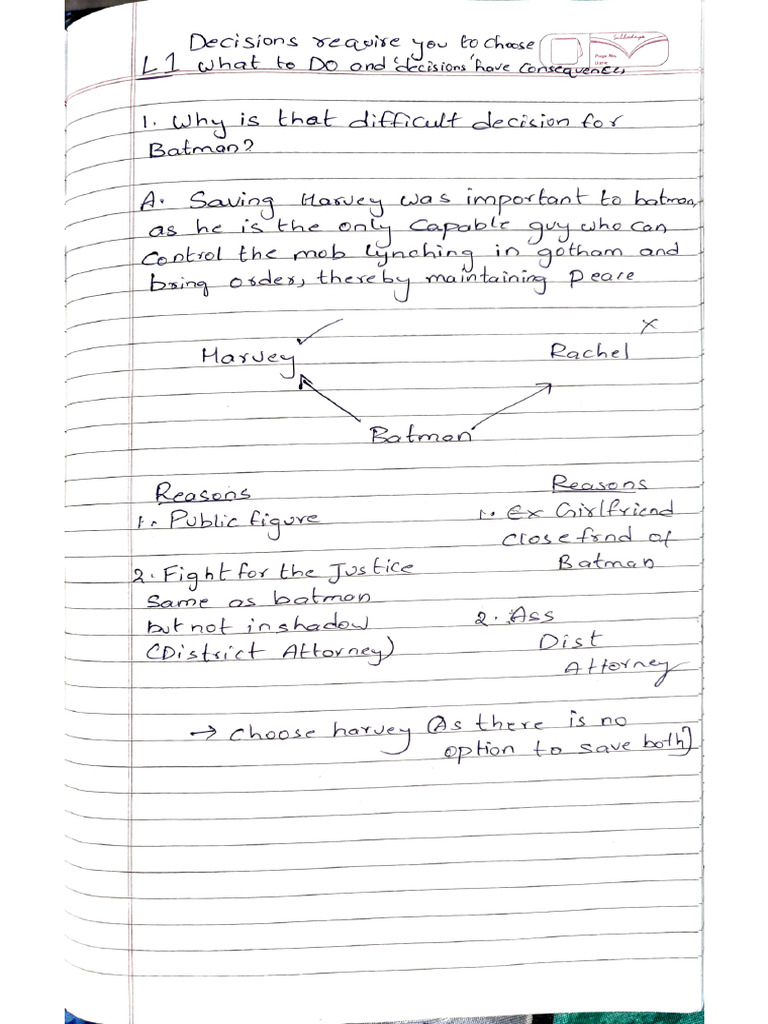 Decisions require you to choose
L1 What to DO and 'decisions' have consequences
Page No.
Date
1. Why is that difficult decision for
Batman?
A. Saving Harvey was important to batman,
as he is the only capable guy who can
control the mob lynching in gotham and
bring order, thereby maintaining peace
Harvey ✓ Rachel x
Batman
Reasons
1. Public figure
2. Fight for the Justice
same as batman
but not in shadow
(District Attorney)
Reasons
1. Ex Girlfriend
close frnd of
Batman
2. Ass
Dist
Attorney
→ choose harvey (As there is no
option to save both)